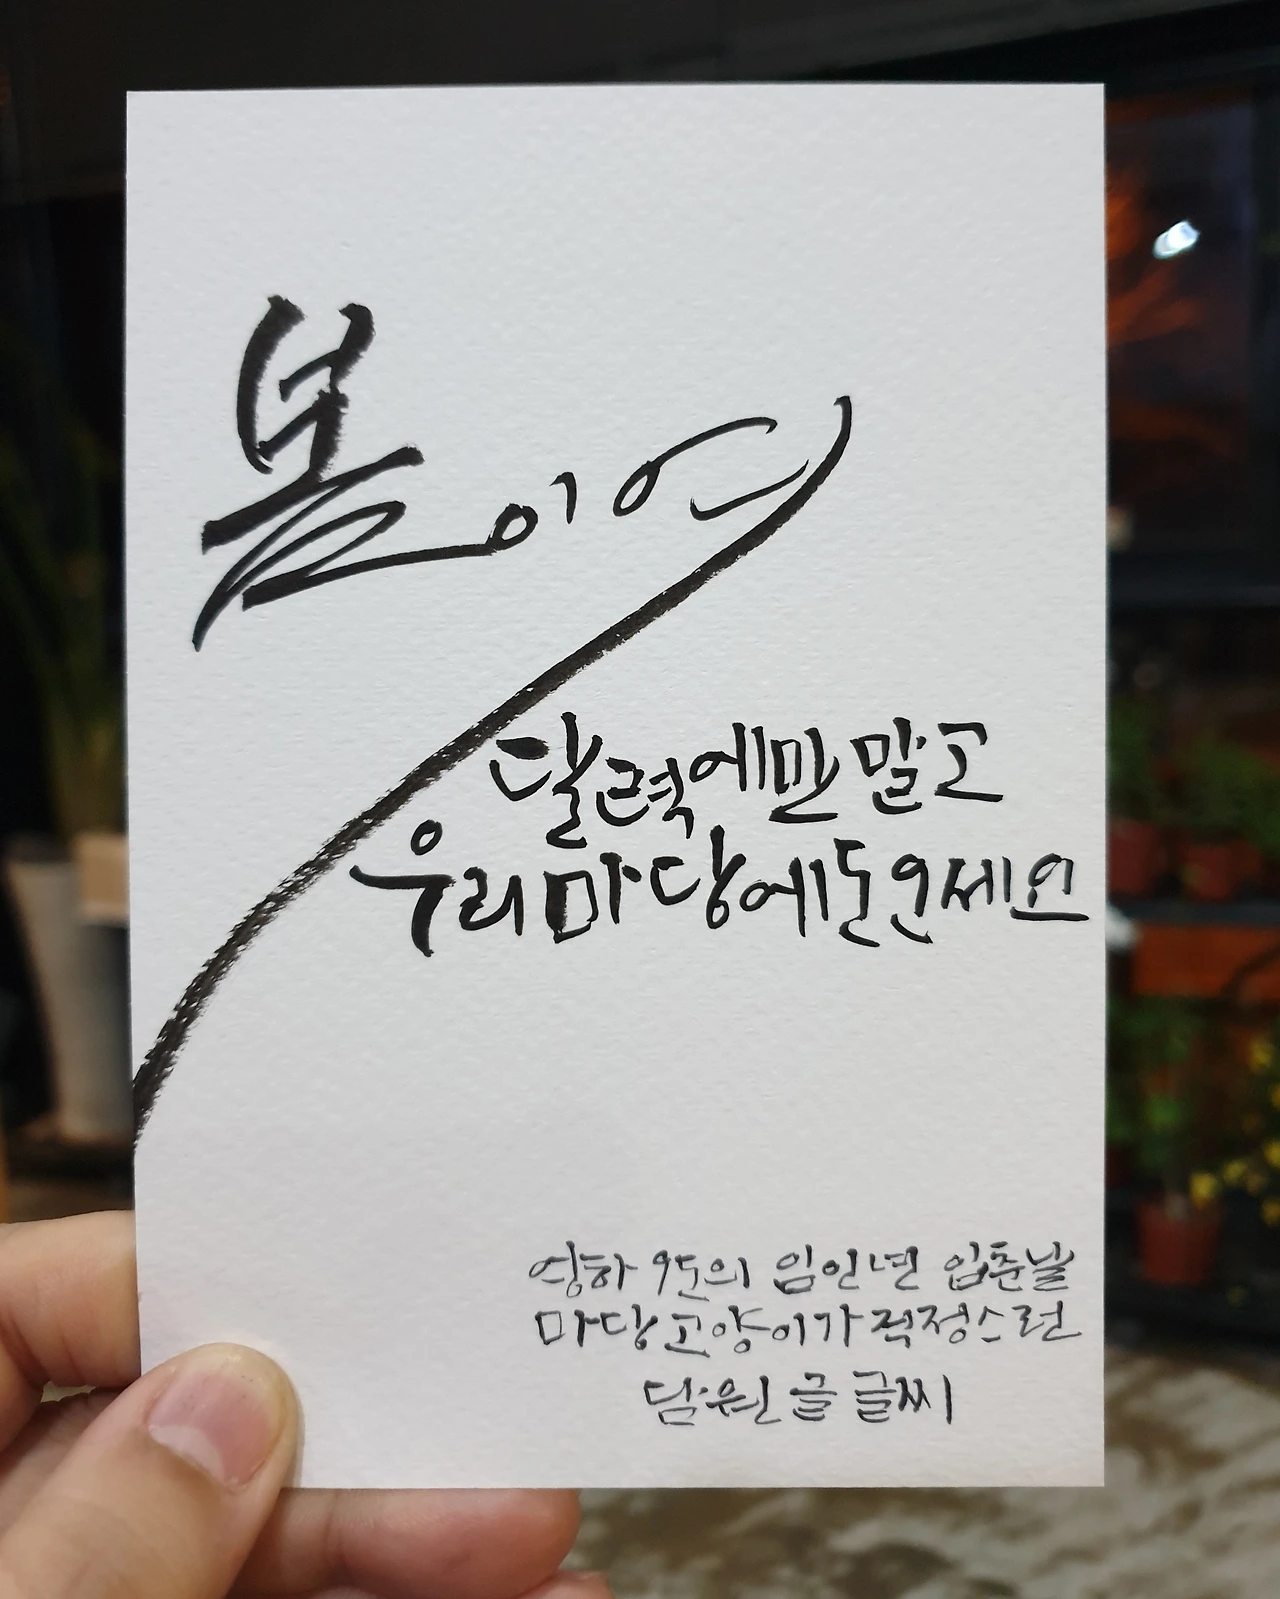 봄이여
달력에만 말고
우리 마당에도 오세요
영하 9도의 임인년 입춘날
마당고양이가 걱정스런
담원 글 글씨